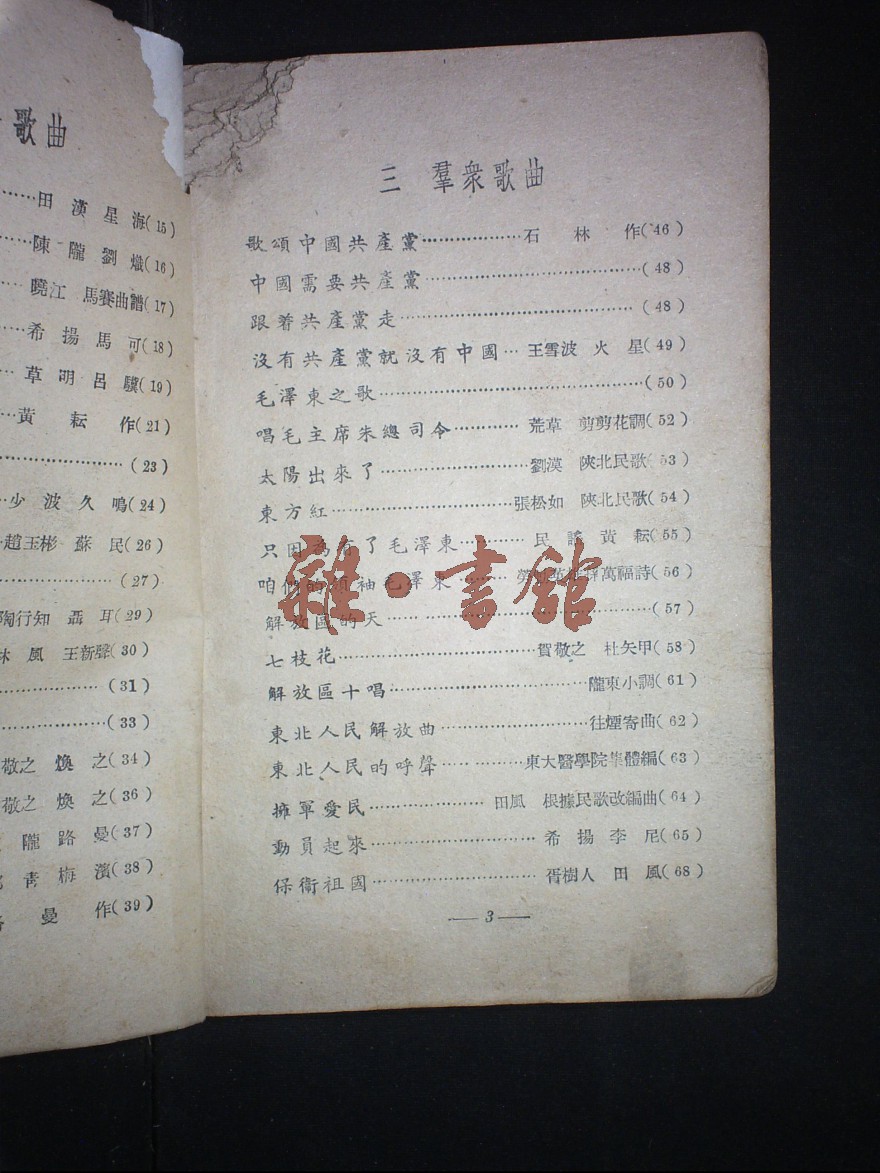 歌曲
田漢星海(15)
陳隴劉熾(16)
曉江 馬賽曲譜(17)
希揚馬可(18)
草明呂驥(19)
黃耘作(21)
(23)
少波久鳴(24)
趙玉彬 蘇民(26)
(27)
陶行知 聶耳(29)
林風 王新聲(30)
(31)
(33)
敬之 煥之(34)
敬之 煥之(36)
隴路曼(37)
青梅濱(38)
曼作(39)
三 羣衆歌曲
歌頌中國共產黨……………石林作(46)
中國需要共產黨……………(48)
跟着共產黨走……………(48)
沒有共產黨就沒有中國…王雪波 火星(49)
毛澤東之歌……………(50)
唱毛主席朱總司令…………荒草 剪剪花調(52)
太陽出來了……………劉漠 陝北民歌(53)
東方紅……………張松如 陝北民歌(54)
只因為有了毛澤東…………民謠 黃耘(55)
咱們的領袖毛澤東………萬福詩(56)
解放區的天……………(57)
七枝花……………賀敬之 杜矢甲(58)
解放區十唱……………隴東小調(61)
東北人民解放曲……………往煙寄曲(62)
東北人民的呼聲……………東大醫學院集體編(63)
擁軍愛民……………田風 根據民歌改編曲(64)
動員起來……………希揚李尼(65)
保衛祖國……………胥樹人 田風(68)
—3—
雜·書館